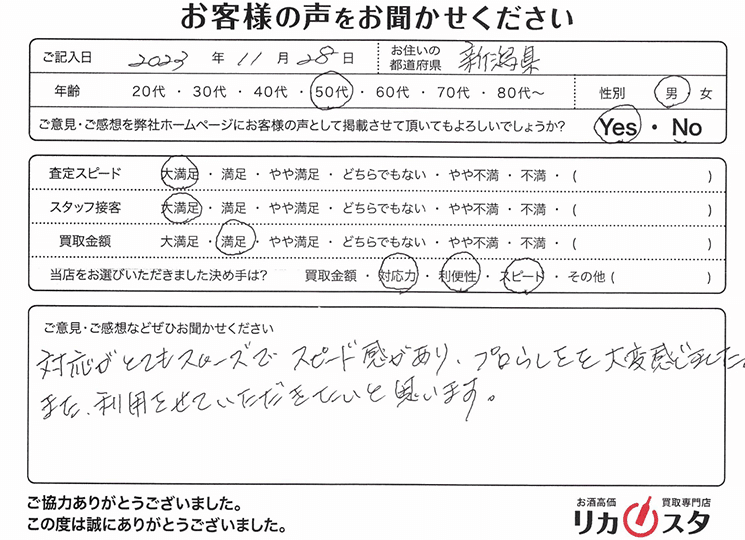 お客様の声をお聞かせください
ご記入日 2023 年 11 月 28 日 お住いの都道府県 新潟県
年齢 20代 ・ 30代 ・ 40代 ・ 50代 ・ 60代 ・ 70代 ・ 80代〜 性別 男 ・ 女
ご意見・ご感想を弊社ホームページにお客様の声として掲載させて頂いてもよろしいでしょうか? Yes ・ No
査定スピード 大満足 ・ 満足 ・ やや満足 ・ どちらでもない ・ やや不満 ・ 不満 ・ ( )
スタッフ接客 大満足 ・ 満足 ・ やや満足 ・ どちらでもない ・ やや不満 ・ 不満 ・ ( )
買取金額 大満足 ・ 満足 ・ やや満足 ・ どちらでもない ・ やや不満 ・ 不満 ・ ( )
当店をお選びいただきました決め手は? 買取金額 ・ 対応力 ・ 利便性 ・ スピード ・ その他 ( )
ご意見・ご感想などぜひお聞かせください
対応がとてもスムーズで スピード感があり、プロらしさを大変感じました。
また、利用させていただきたいと思います。
ご協力ありがとうございました。
この度は誠にありがとうございました。
お酒高価 買取専門店
リカスタ